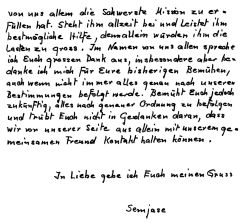 von uns allem die Schwerste Mission zu er-
füllen hat. Steht ihm allzeit bei und Leistet ihm
bestmögliche Hilfe, denn allein würden ihm die
Lasten zu gross. Im Namen von uns allen spreche
ich Euch grossen Dank aus, insbesondere aber be-
danke ich mich für Eure bisherigen Bemühen,
auch wenn nicht immer alles genau nach unseren
Bestimmungen befolgt werde. Bemüht Euch jedoch
zukünftig, alles nach genauer Ordnung zu befolgen
und trübt Euch nicht in Gedanken daran, dass
wir von unserer Seite aus allein mit unserem ge-
meinsamen Freund Kontakt halten können.
In Liebe gebe ich Euch meinen Gruss
Semjase